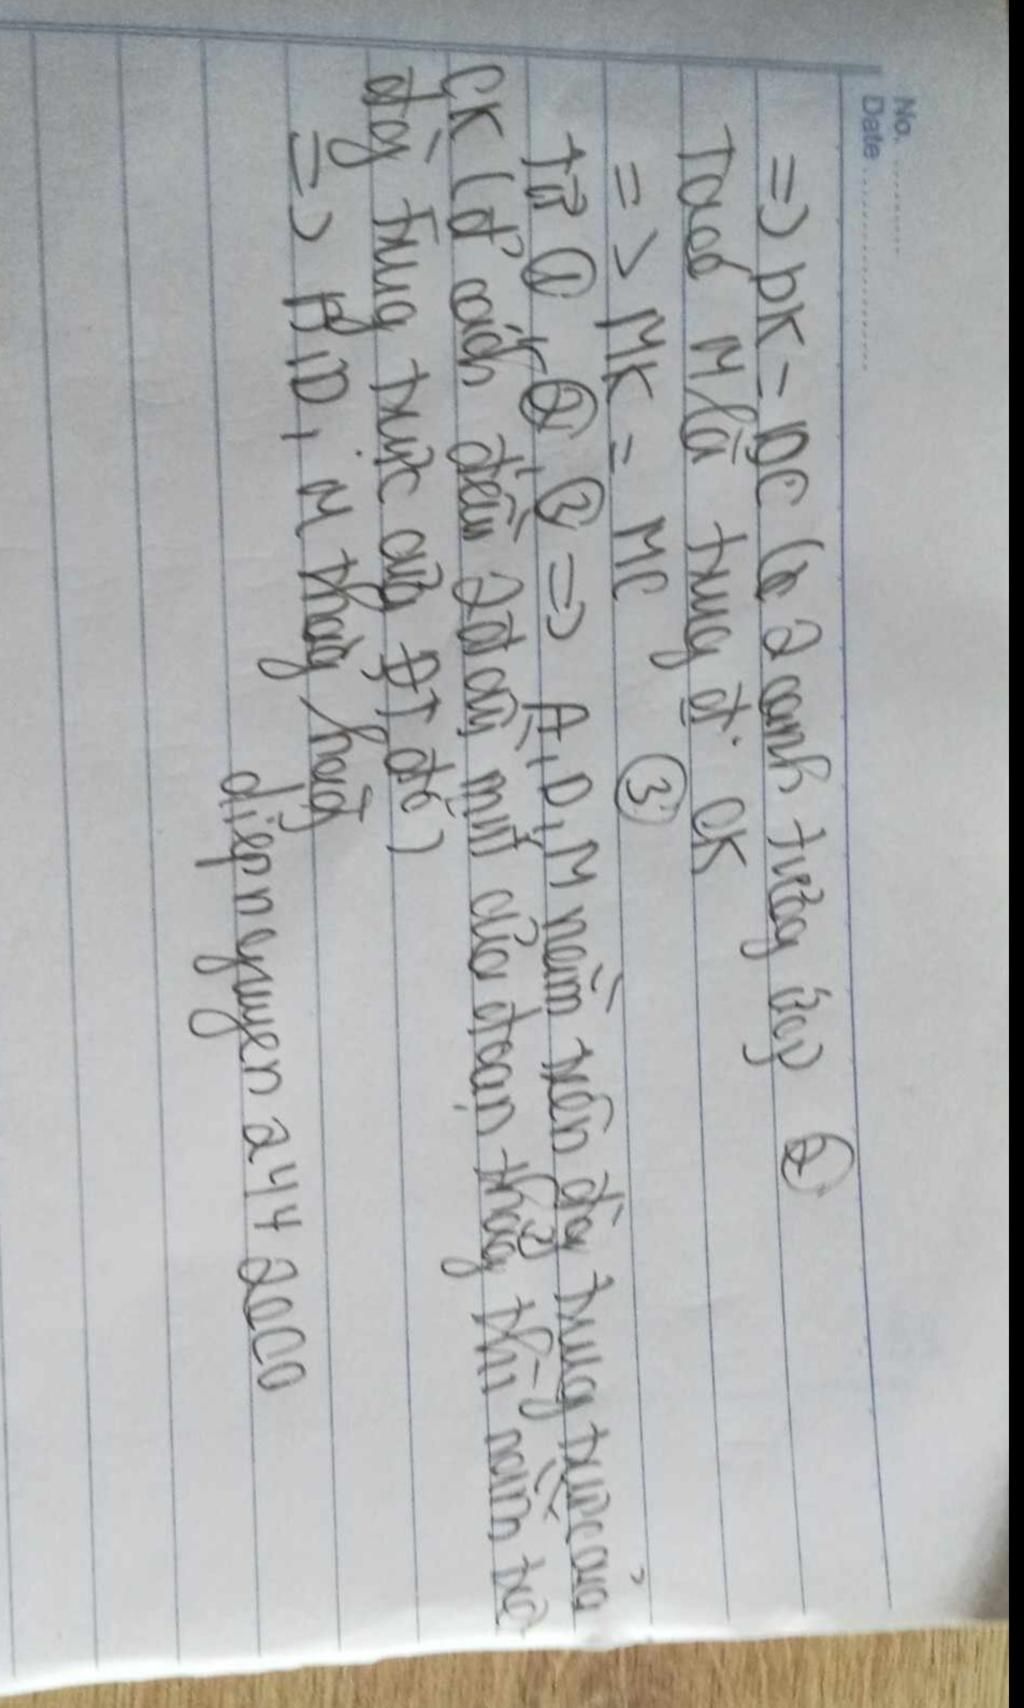 No. ............
Date ........................
=> DK = DC (2 cạnh tương ứng) ②
Ta có M là trug đ' CK
=> MK = MC ③
Từ ①, ②, ③ => A, D, M nằm trên đg trug trực của
CK (đ' cách đều 2 đầu mút của đoạn thẳg thì nằm trên
đg trug trực của ĐT đó)
=> A, D, M thẳg hàg
diepnguyen2442000